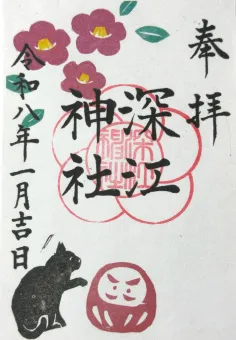 奉拝
深江
神社
令和八年一月吉日